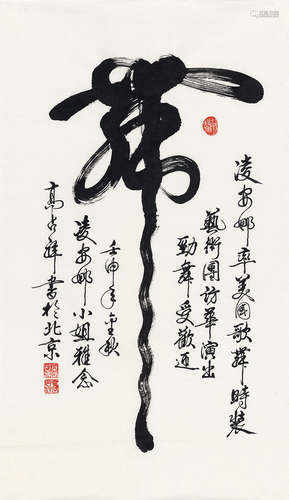 舞
凌安娜率美国歌舞時裝
藝術團訪華演出
勁舞受歡迎
壬申年金秋
凌安娜小姐雅念
高占祥書於北京